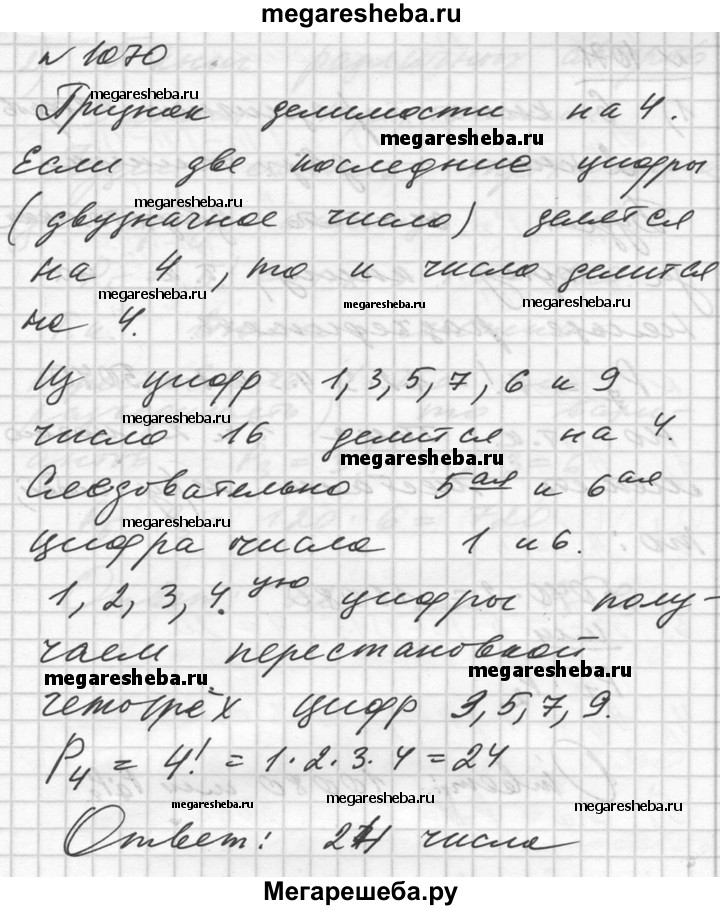 megaresheba.ru
№ 1070
megaresheba.ru
Признак делимости на 4.
megaresheba.ru
Если две последние цифры
megaresheba.ru
(двузначное число) делятся
на 4, то и число делится
megaresheba.ru megaresheba.ru megaresheba.ru
на 4.
Из цифр 1, 3, 5, 7, 6 и 9
megaresheba.ru
число 16 делится на 4.
megaresheba.ru megaresheba.ru
Следовательно 5ая и 6ая
megaresheba.ru
цифра числа 1 и 6.
1, 2, 3, 4.ую цифры полу-
чаем перестановкой
megaresheba.ru megaresheba.ru
четырёх цифр 3, 5, 7, 9.
P4 = 4! = 1·2·3·4 = 24
megaresheba.ru megaresheba.ru megaresheba.ru
Ответ: 24 числа
Мегарешеба.ру